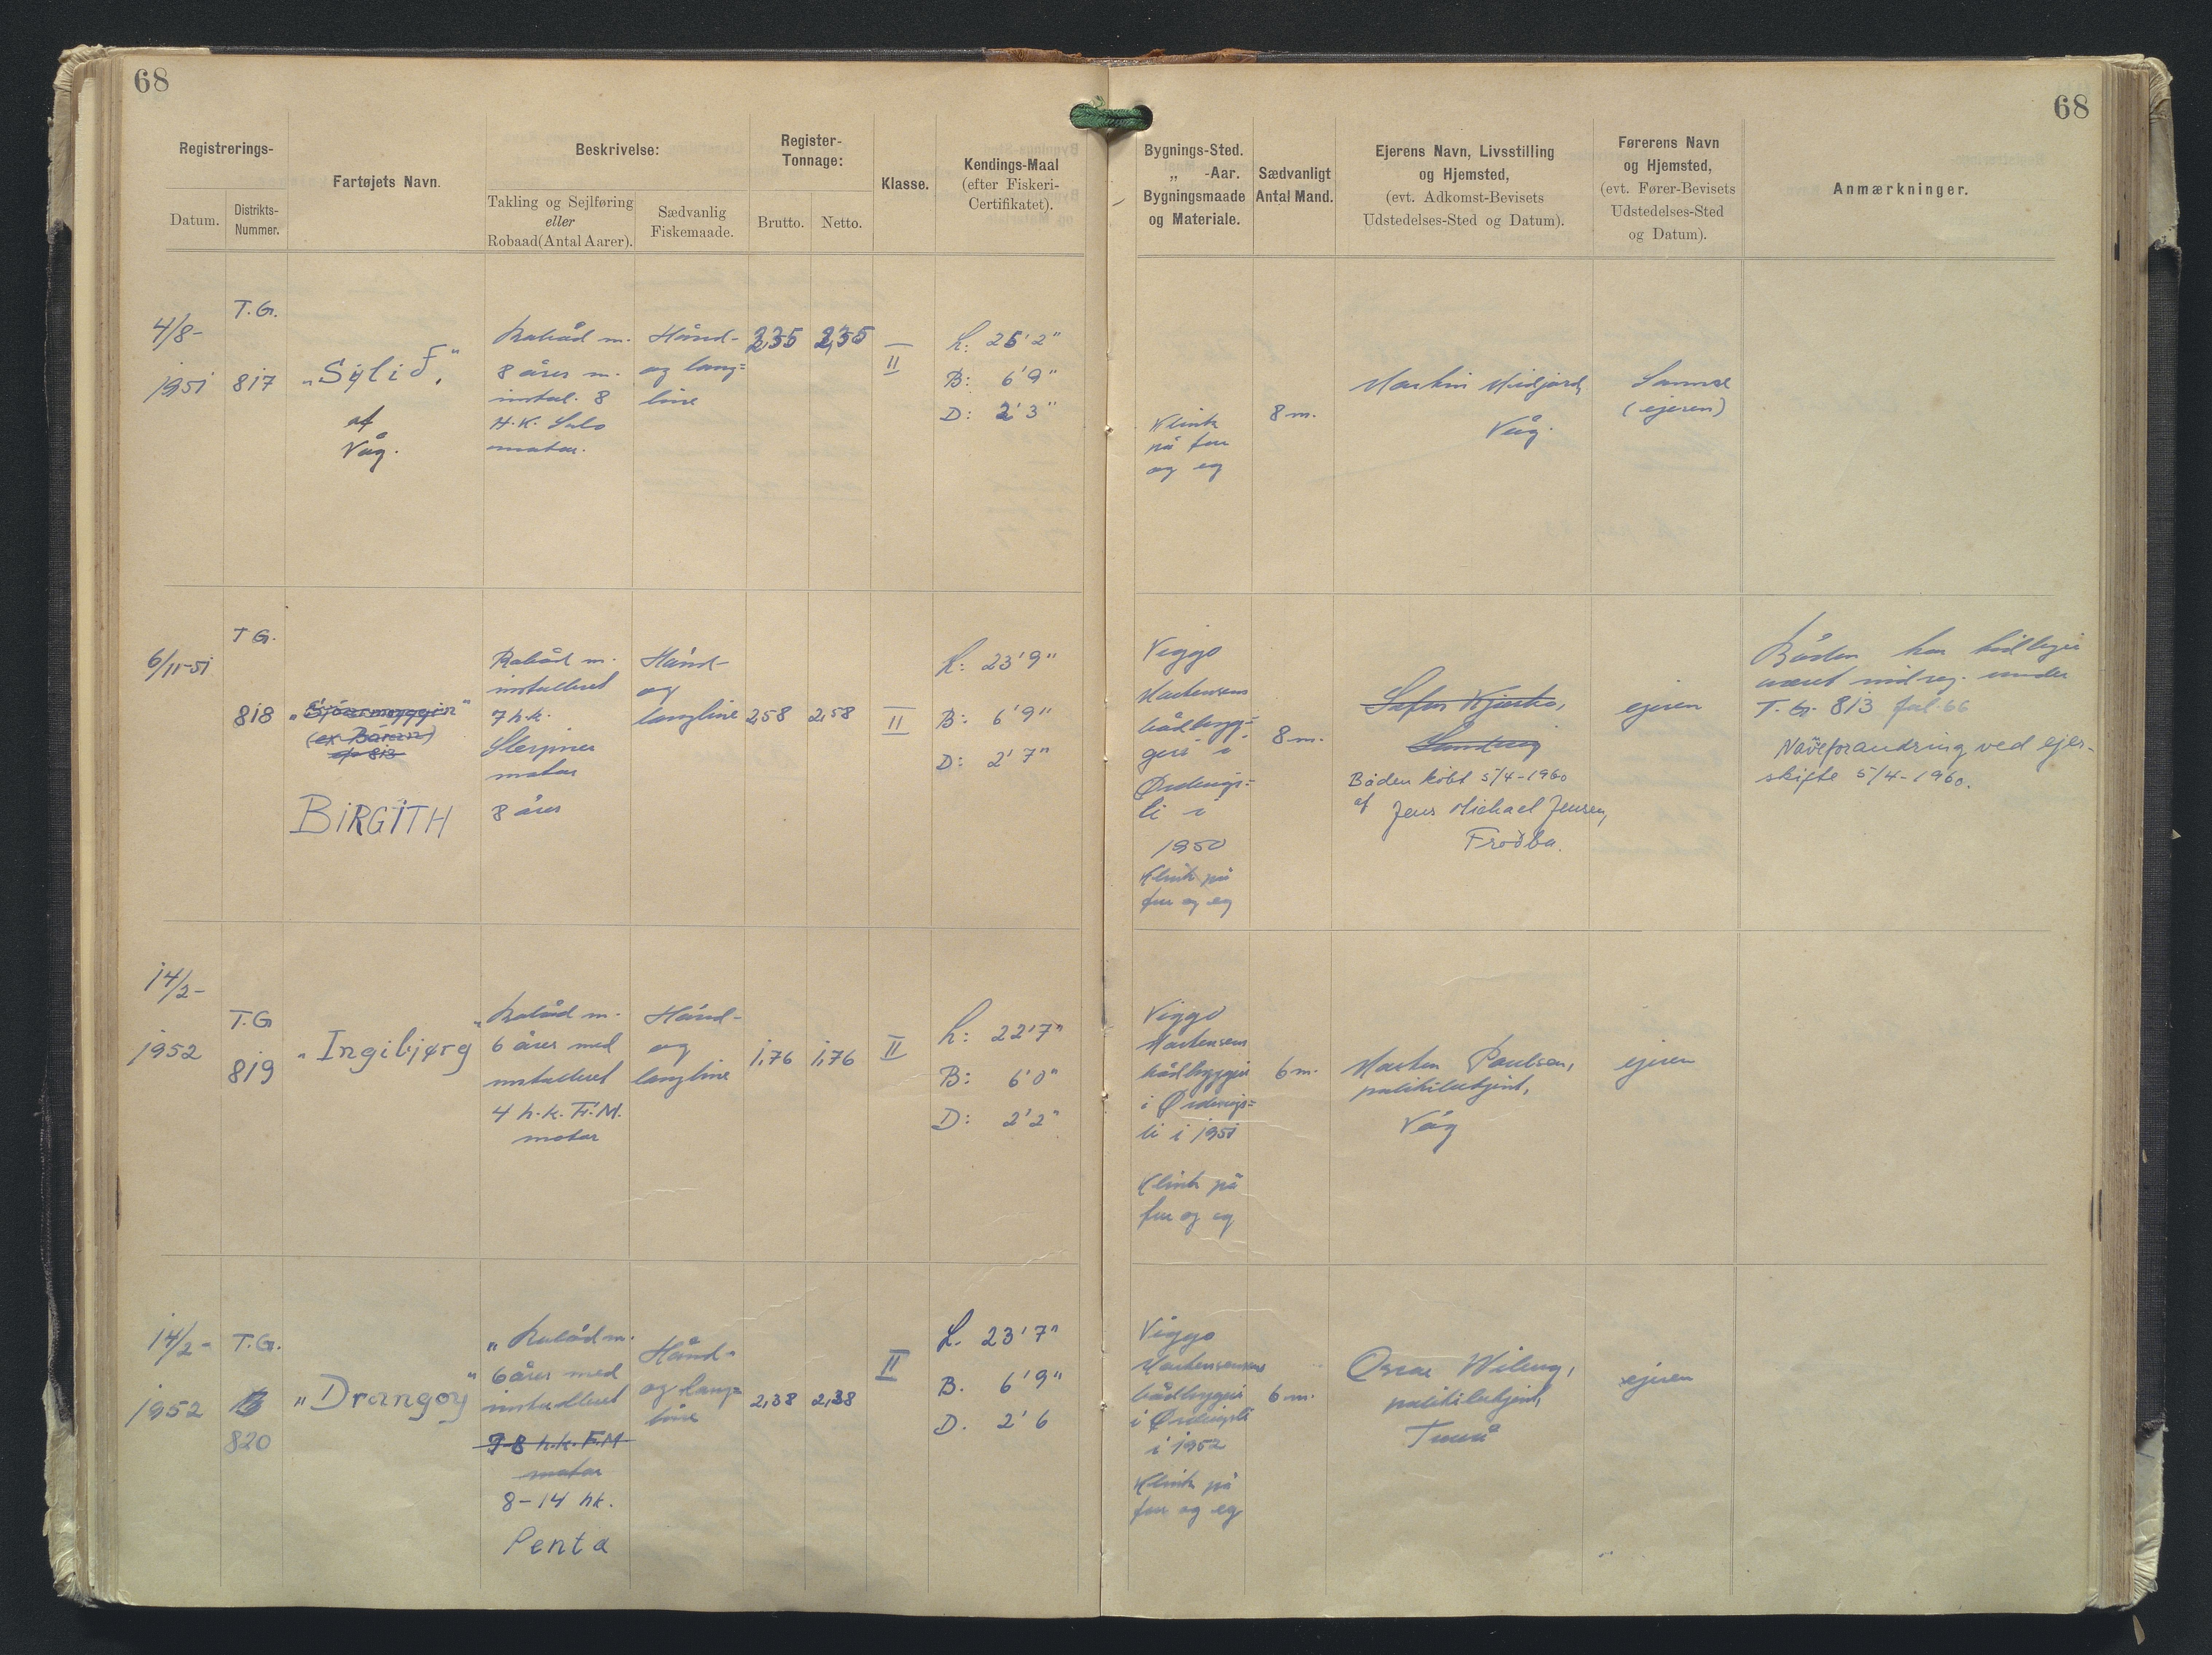 68
68
Registrerings-
Datum.
Distrikts-
Nummer.
Fartøjets Navn.
Beskrivelse:
Takling og Sejlføring
eller
Robaad (Antal Aarer).
Sædvanlig
Fiskemaade.
Register-
Tonnage:
Brutto.
Netto.
Klasse.
Kendings-Maal
(efter Fiskeri-
Certifikatet).
Bygnings-Sted.
„ -Aar.
Bygningsmaade
og Materiale.
Sædvanligt
Antal Mand.
Ejerens Navn, Livsstilling
og Hjemsted,
(evt. Adkomst-Bevisets
Udstedelses-Sted og Datum).
Førerens Navn
og Hjemsted,
(evt. Fører-Bevisets
Udstedelses-Sted
og Datum).
Anmærkninger.
4/8-
1951
T.G.
817
af
Våg.
Robåd m.
8 årer m.
instal. 8
H.K.
motor.
Hånd-
og lang=
line
2,35
2,35
II
L: 25' 2"
B: 6' 9"
D: 2' 3"
Klink
på fur
og eg
8 m.
Martin Midjord,
Våg.
Samme
(ejeren)
6/11-51
T G.
818
(ex Báran)
813
BIRGITH
Robåd m.
installeret
7 h.k.
Sleipner
motor
8 årer
Hånd-
og
langline
2,58
2,58
II
L: 23' 9"
B: 6' 9"
D: 2' 7"
Viggo
Mortensens
bådbygg=
geri i
Ørdevigs=
li i
1950
Klink på
fur og eg
8 m.
Båden købt 5/4-1960
af Jens Michael Jensen,
Froðba.
ejeren
Båden har tidligere
været indreg. under
T. G. 813 fol. 66
Navneforandring ved ejer-
skifte 5/4-1960.
14/2-
1952
T.G
819
"Ingibjørg"
Robåd m.
6 årer med
installeret
4 h.k. F.M.
motor
Hånd-
og
langline
1,76
1,76
II
L: 22' 7"
B: 6' 0"
D: 2' 2"
Viggo
Mortensens
bådbyggeri
i Ørdevigs=
li i 1951
Klink på
fur og eg
6 m.
Morten Poulsen,
politibetjent,
Våg
ejeren
14/2-
1952
T.G.
820
"Drangoy"
" Robåd m.
6 årer med
installeret
7-8 h.k. F.M
motor
8-14 hk.
Penta
Hånd-
og lang=
line
2,38
2,38
II
L. 23' 7"
B. 6' 9"
D. 2' 6
Viggo
Mortensens
bådbyggeri
i Ørdevigsli
i 1952
Klink på
fur og eg
6 m.
politibetjent,
ejeren